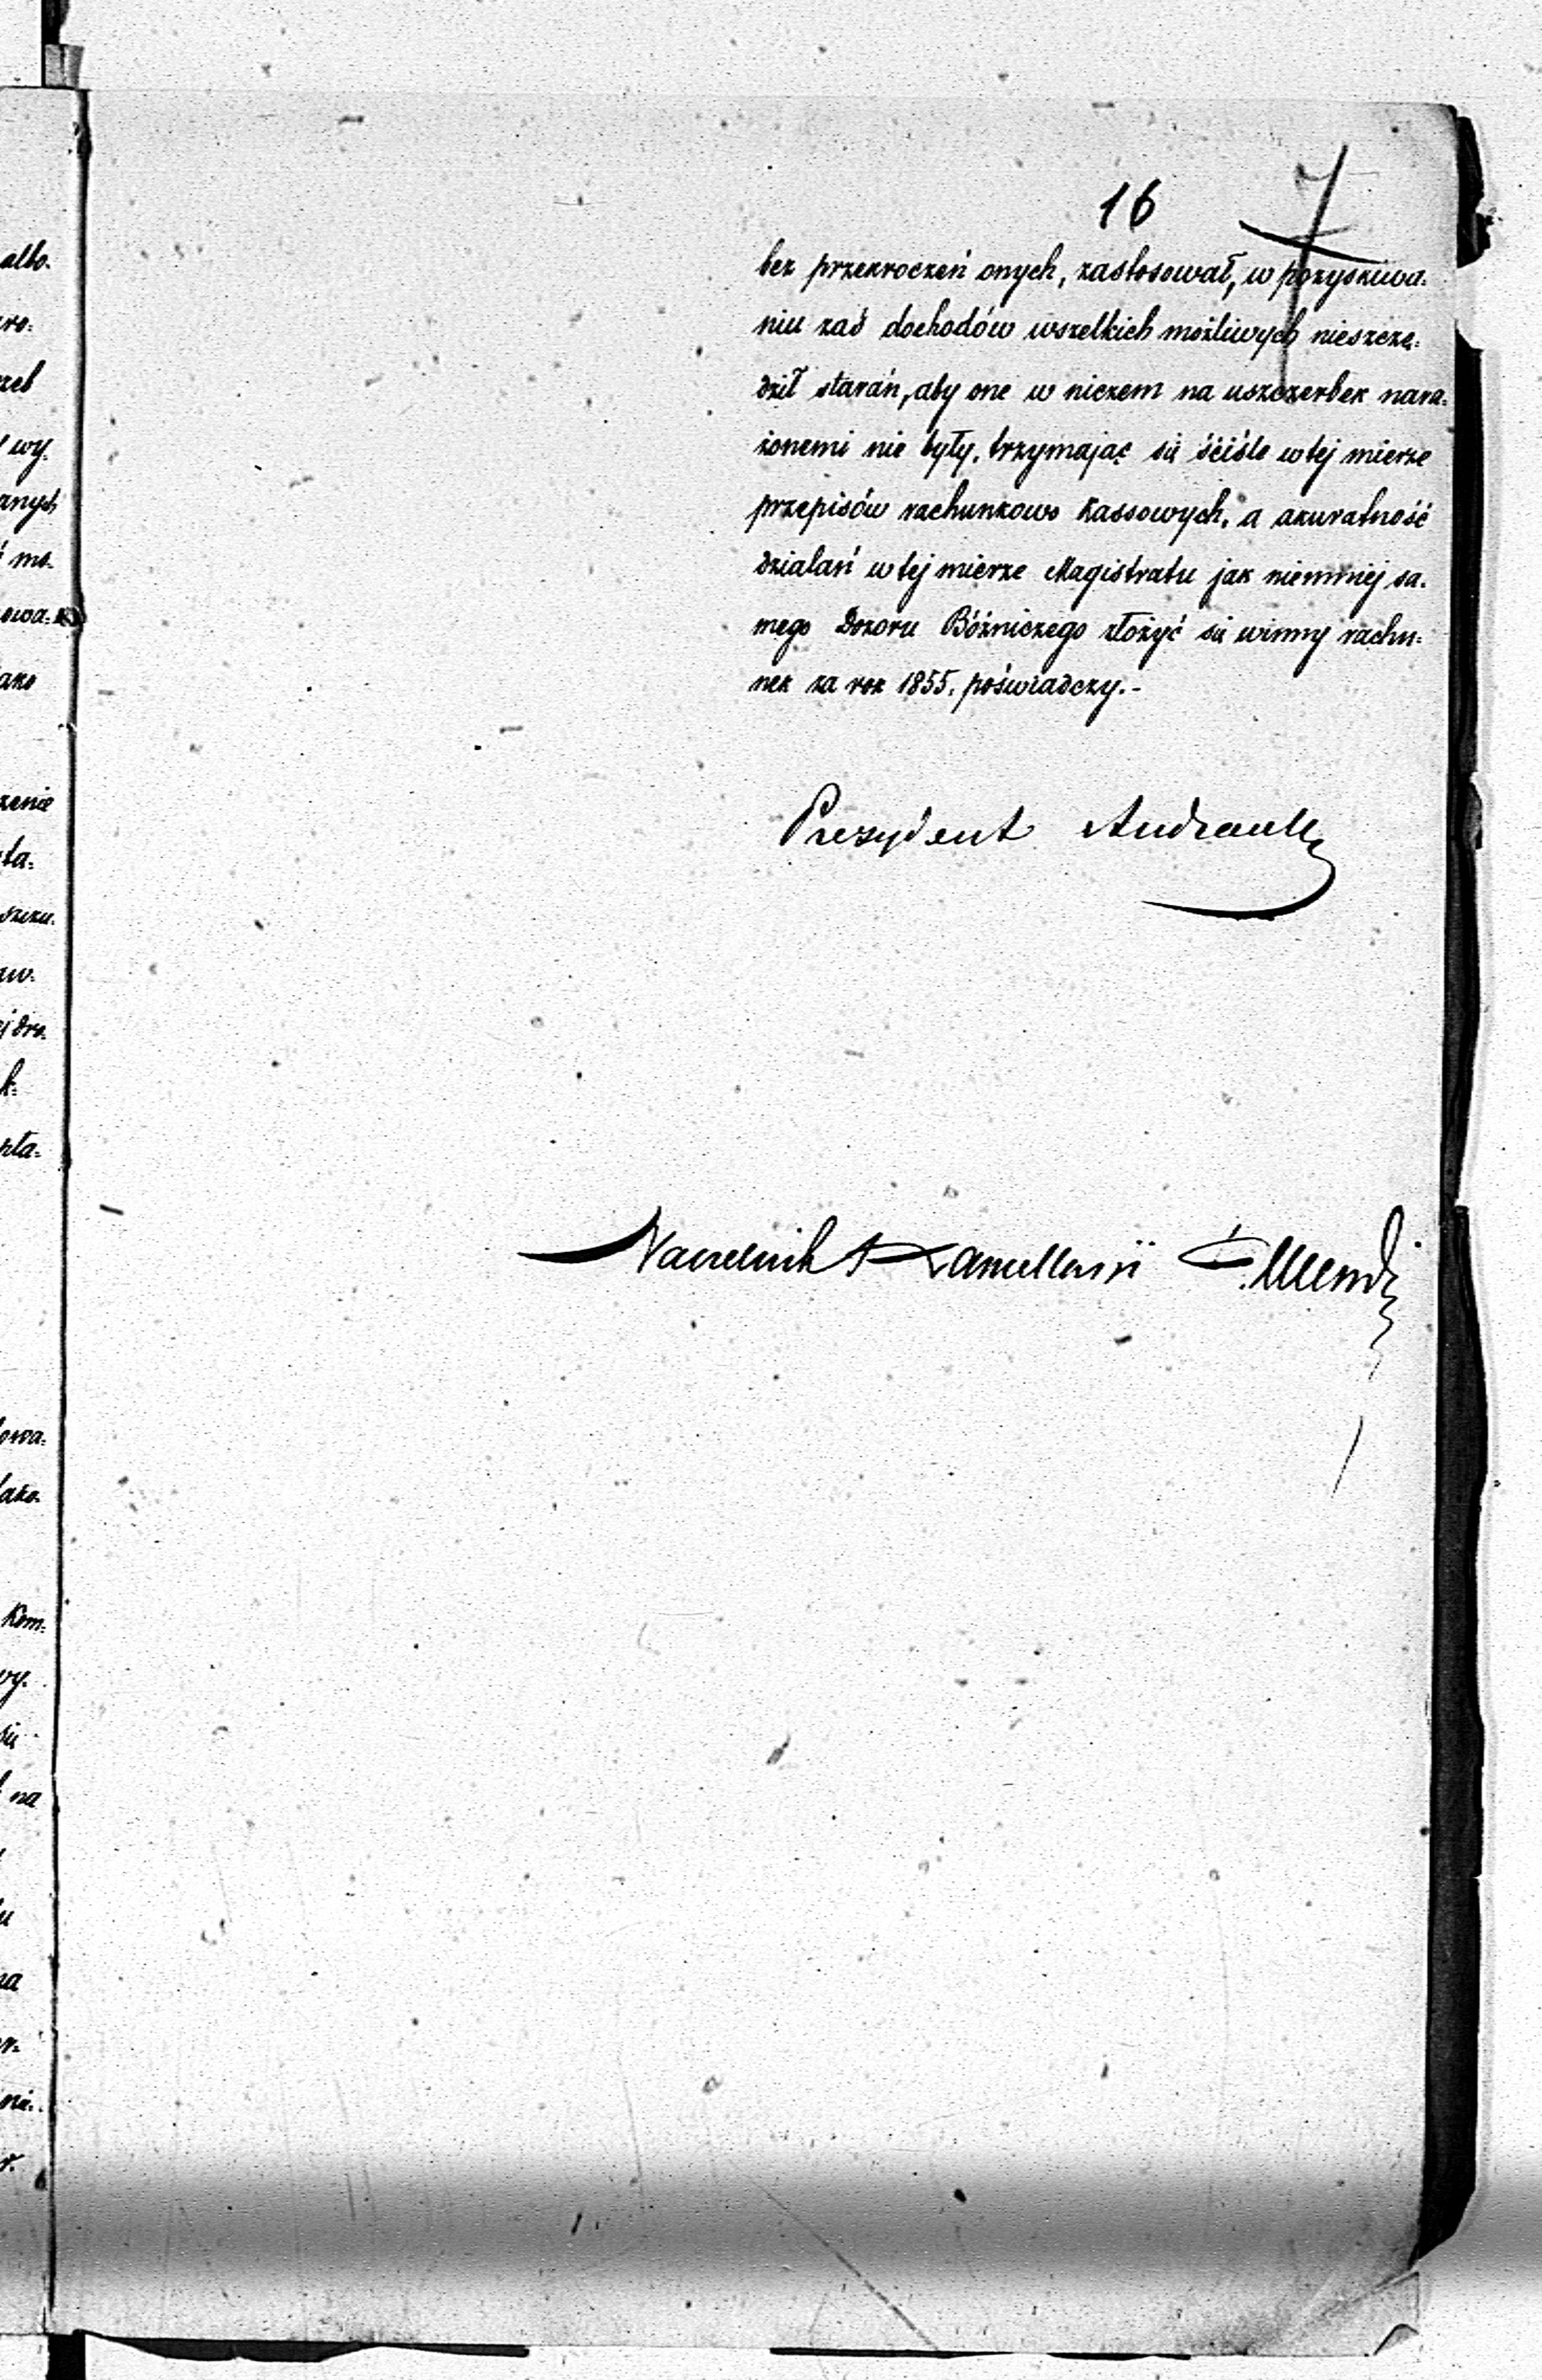 albo.
wy.
zenie
Kom.
wy.
na
16
7
bez przekroczeń onych, zastosował, w pozyskiwa=
niu zaś dochodów wszelkich możliwych nieszczę=
dził starań, aby one w niczem na uszczerbek nara=
żonemi nie były, trzymając się ściśle w tej mierze
przepisów rachunkowo Kassowych, a akuratność
działań w tej mierze Magistratu jak niemniej sa=
mego Dozoru Bóżniczego złożyć się winny rachu=
nek za rok 1855. poświadczy.-
Prezydent Andrault
Naczelnik Kancellaryi